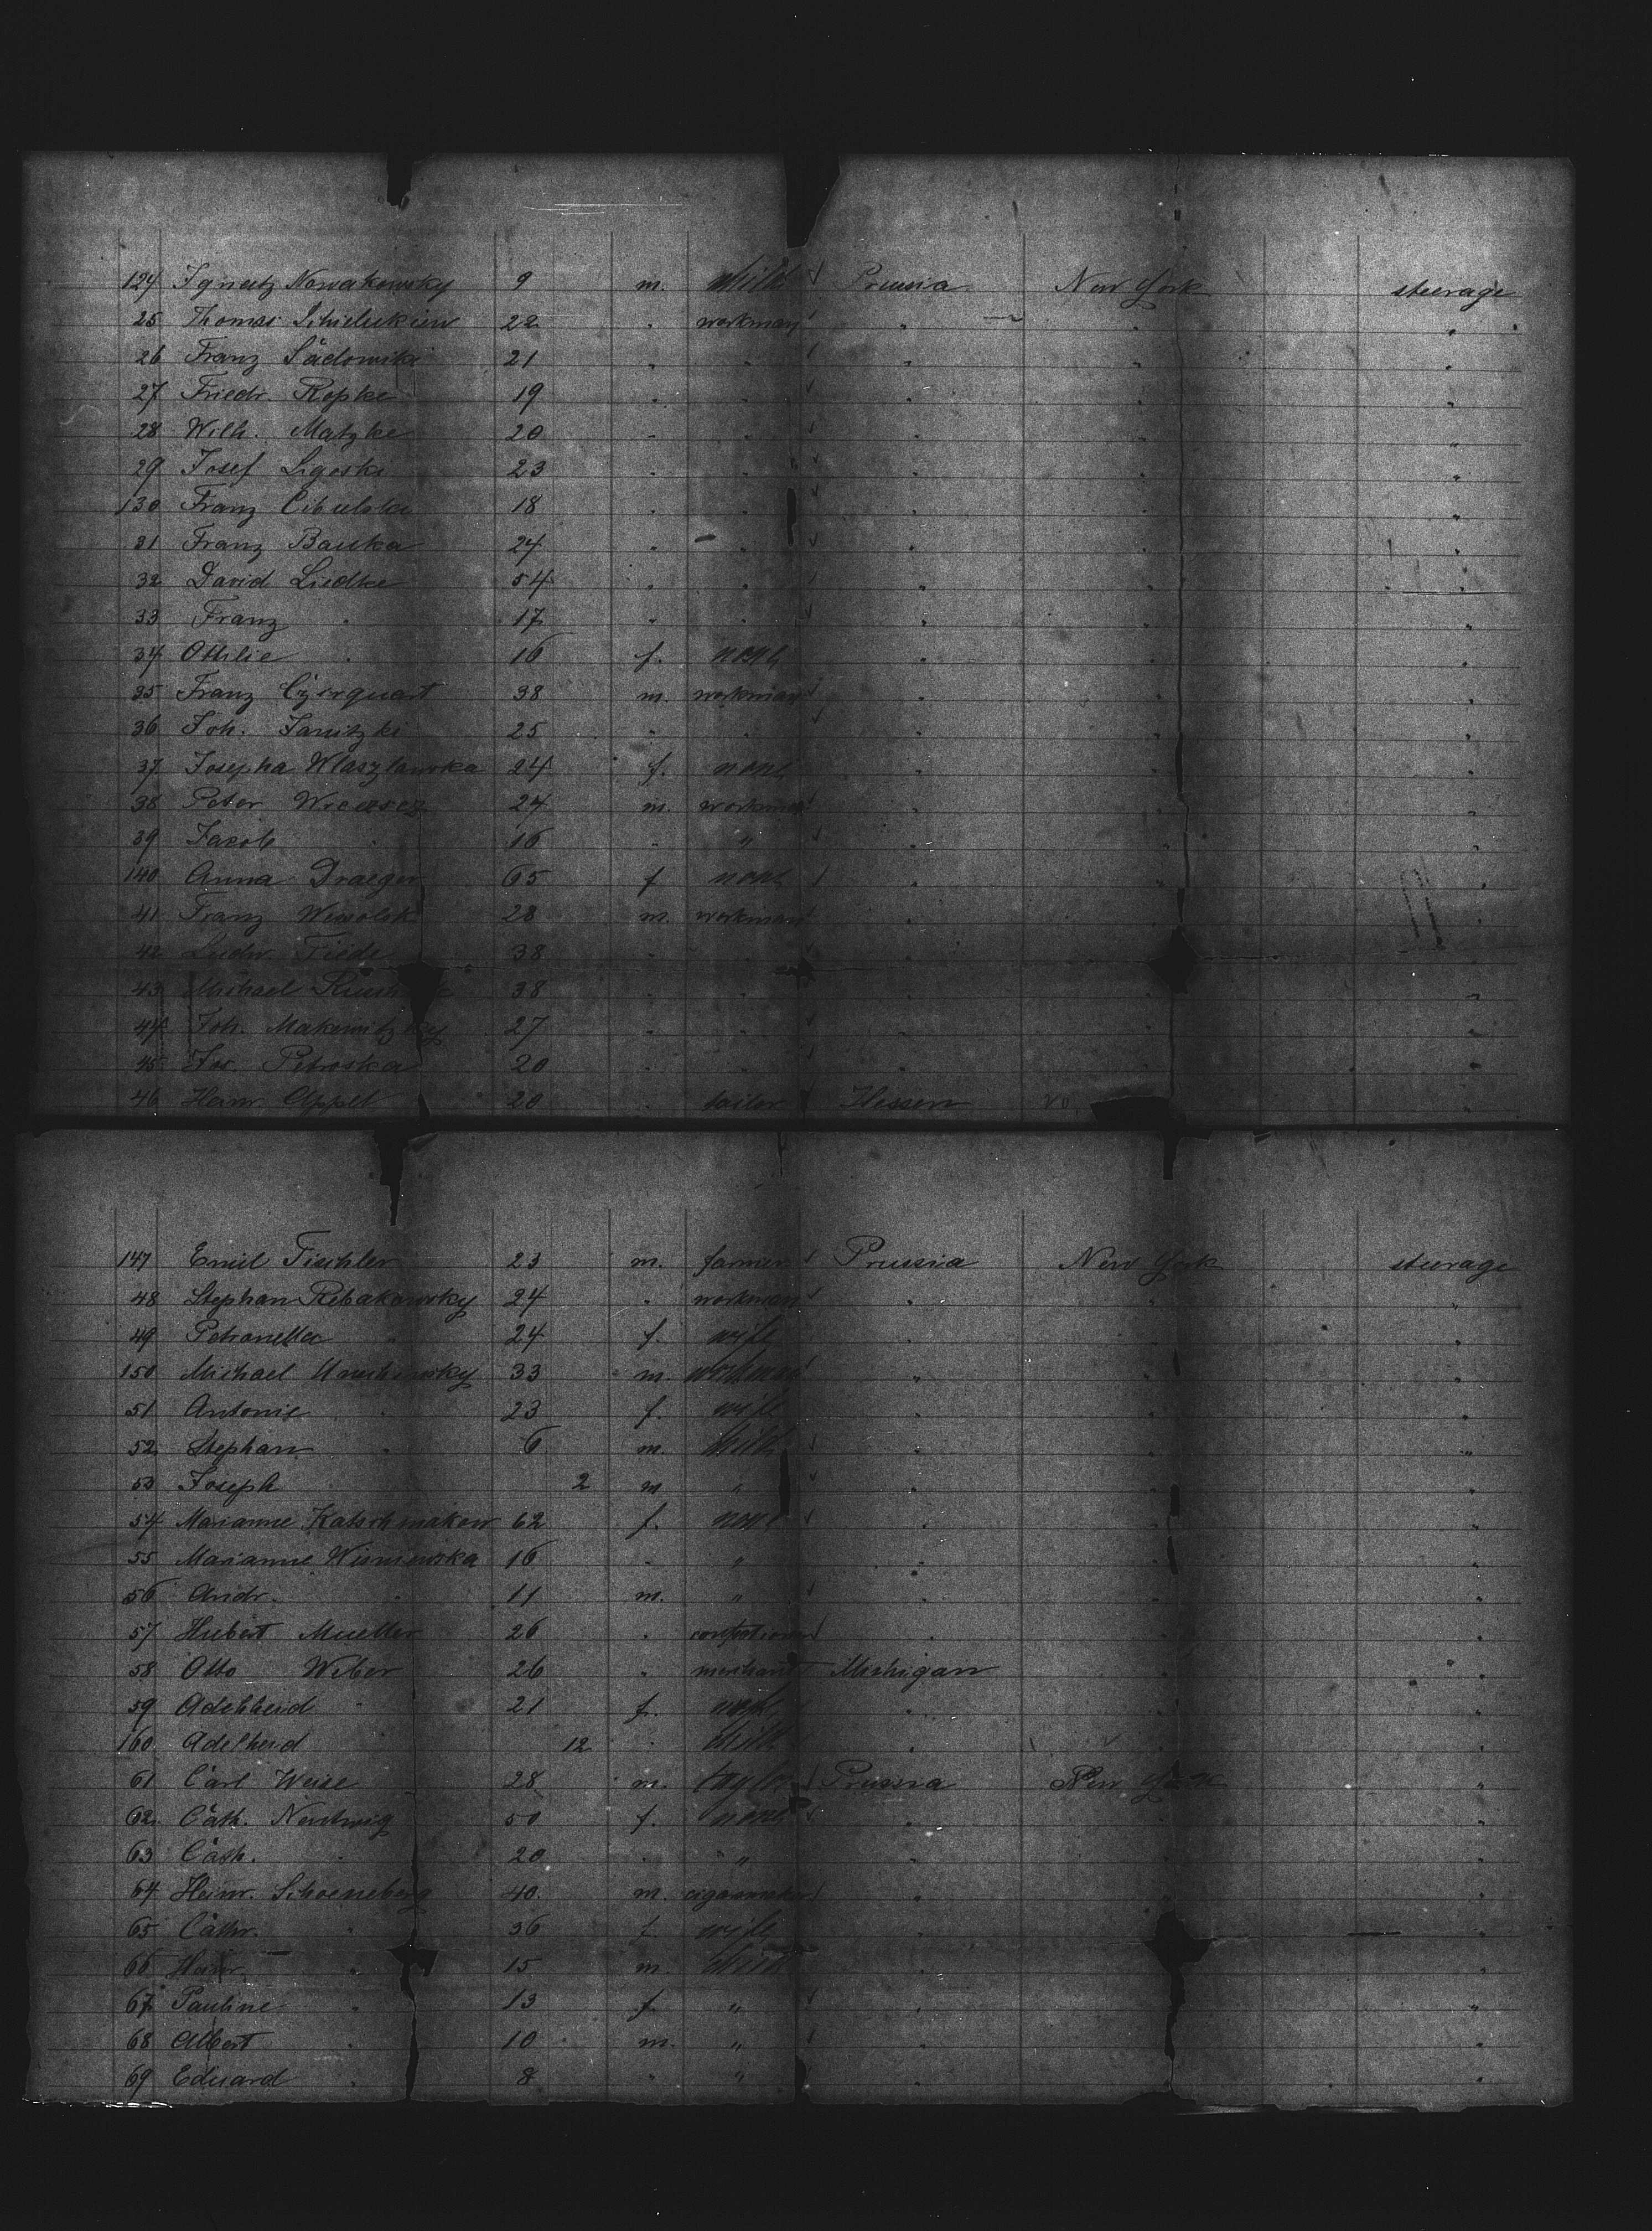 124 Ignatz Nowakowsky 9 m. child Prussia New York steerage
25 Thomas 22 " workman " " "
26 Franz Sadowski 21 " " " " "
27 Friedr. Kopke 19 " " " " "
28 Wilh. Matzke 20 " " " " "
29 Josef Ligoski 23 " " " " "
130 Franz Cibulski 18 " " " " "
31 Franz Bauka 24 " " " " "
32 David Liedke 54 " " " " "
33 Franz " 17 " " " " "
34 Othilie " 16 f. none " " "
35 Franz 38 m. workman " " "
36 Joh. Janitzki 25 " " " " "
37 Josepha Waszlawska 24 f. none " " "
38 Peter 24 m. workman " " "
39 Jacob " 16 " " " " "
140 Anna Draeger 65 f none " " "
41 Franz 28 m. workman " " "
42 Ludw. Tiede 38 " " " " "
43 Michael 38 " " " " "
44 Joh. 27 " " " " "
45 Jos. Petroska 20 " " " " "
46 Heinr. Appel 20 " tailor Hessen "
147 Emil Tischler 23 m. farmer Prussia New York steerage
48 Stephan Rebakowsky 24 " workman " " "
49 Petronella " 24 f. wife " " "
150 Michael 33 m. workman " " "
51 Antonie " 23 f. wife " " "
52 Stephan " 6 m. child " " "
53 Joseph 2 m " " " "
54 Marianne Katschmakow 62 f. none " " "
55 Marianne Wisniewska 16 " " " " "
56 Andr. " 11 m. " " " "
57 Hubert Mueller 26 " confectioner " " "
58 Otto Weber 26 " merchant Michigan " "
59 Adelheid " 21 f. wife " " "
160 Adelheid " 12 " child " " "
61 Carl Weise 28 m. taylor Prussia New York "
62 Cath. Nentwig 50 f. none " " "
63 Cath. " 20 " " " " "
64 Heinr. Schoeneberg 40 m. cigarmaker " " "
65 Cathr. " 36 f. wife " " "
66 Heinr. " 15 m. child " " "
67 Pauline " 13 f. " " " "
68 Albert " 10 m. " " " "
69 Eduard " 8 " " " " "